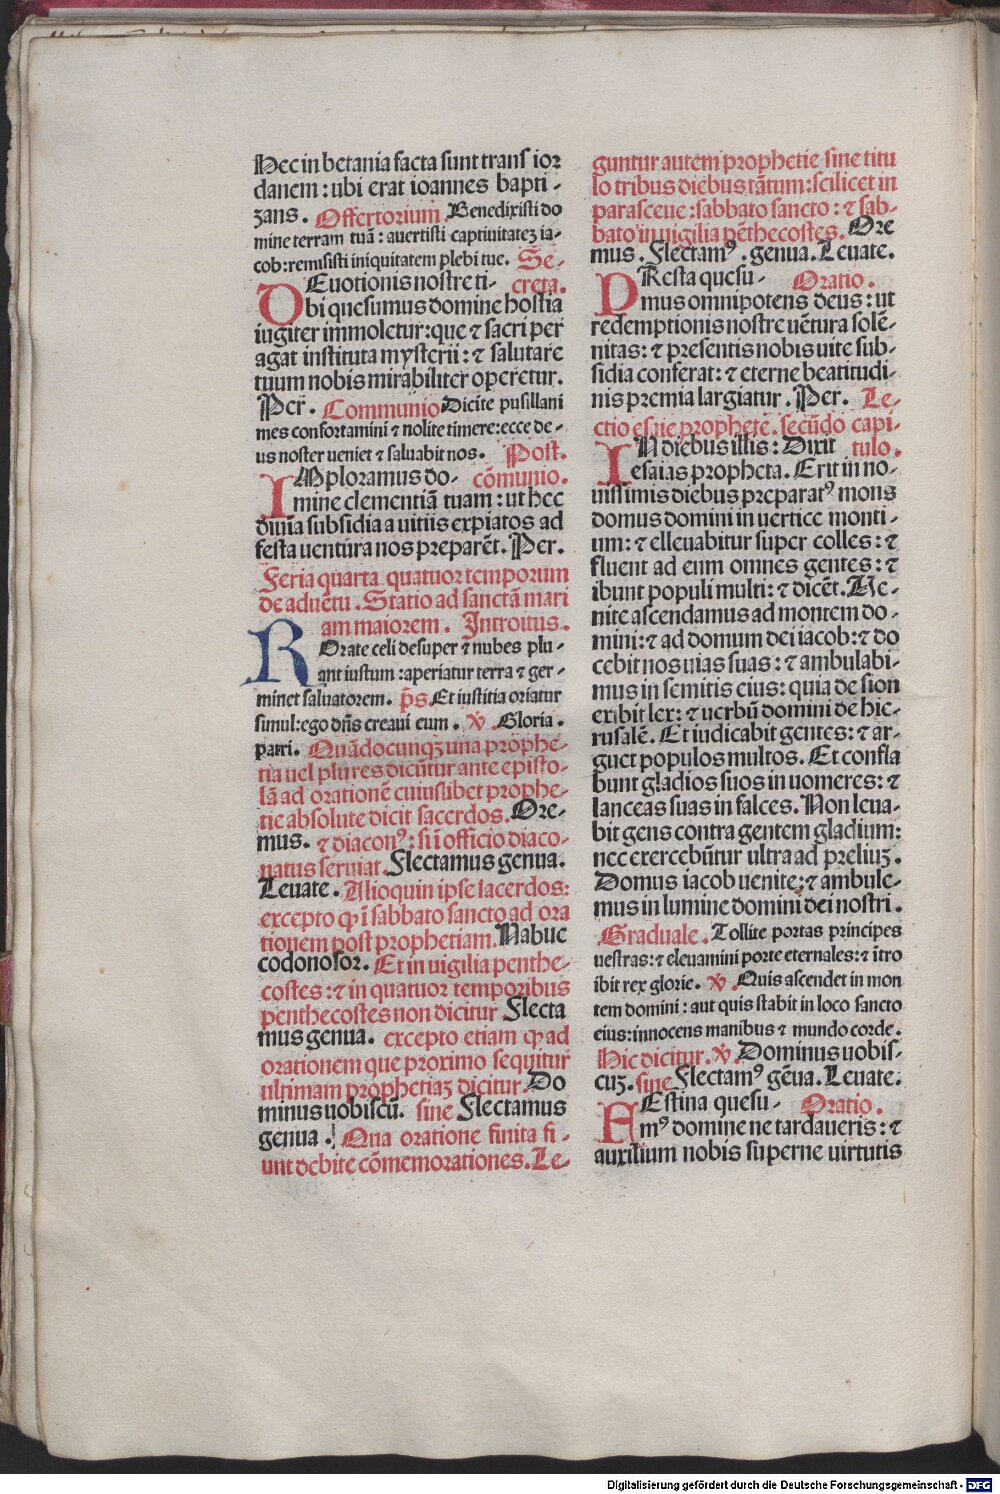 Hec in betania facta sunt trans ior
danem : ubi erat ioannes bapti-
zans. Offertorium. Benedixisti do
mine terram tuã : auertisti captiuitatez ia-
cob: remisisti iniquitatem plebi tue. Se-
DEuotionis nostre ti- creta.
bi quesumus domine hostia
iugiter immoletur: que ⁊ sacri per
agat instituta mysterii: ⁊ salutare
tuum nobis mirabiliter operetur.
Per. Communio Dicite pusillani
mes confortamini ⁊ nolite timere: ecce de-
us noster ueniet ⁊ saluabit nos. Post.
IMploramus do- cõmunio.
mine clementiã tuam: ut hec
diuina subsidia a uitiis expiatos ad
festa uentura nos preparẽt. Per.
Feria quarta quatuor temporum
de aduẽtu. Statio ad sanctã mari
am maiorem. Introitus.
ROrate celi desuper ⁊ nubes plu-
ant iustum: aperiatur terra ⁊ ger-
minet saluatorem. p̃s. Et iustitia oriatur
simul: ego dñs creaui eum. ℣. Gloria.
patri. Quãdocunqȝ una prophe-
tia uel plures dicũtur ante episto-
lã ad orationẽ cuiuslibet prophe-
tie absolute dicit sacerdos. Ore-
mus. ⁊ diaconꝰ: si ĩ officio diaco-
natus seruiat. Flectamus genua.
Leuate. Alioquin ipse sacerdos:
excepto ꝙ ĩ sabbato sancto ad ora
tionem post prophetiam. Nabuc
codonosor. Et in uigilia penthe-
costes: ⁊ in quatuor temporibus
penthecostes non dicitur Flecta
mus genua. excepto etiam ꝙ ad
orationem que proximo sequitur
ultimam prophetiaz dicitur. Do
minus uobiscũ. sine Flectamus
genua. Qua oratione finita fi-
unt debite cõmemorationes. Le-
guntur autem prophetie sine titu
lo tribus diebus tãtum: scilicet in
parasceue: sabbato sancto: ⁊ sab-
bato in uigilia pẽthecostes. Ore
mus. Flectamꝰ. genua. Leuate.
PResta quesu- Oratio.
mus omnipotens deus: ut
redemptionis nostre uẽtura solẽ-
nitas: ⁊ presentis nobis uite sub-
sidia conferat: ⁊ eterne beatitudi-
nis premia largiatur. Per. Le-
ctio esaie prophete. secũdo capi-
IN diebus illis: Dixit tulo.
esaias propheta. Erit in no-
uissimis diebus preparatꝰ mons
domus domini in uertice monti-
um: ⁊ elleuabitur super colles: ⁊
fluent ad eum omnes gentes: ⁊
ibunt populi multi: ⁊ dicẽt. Ue-
nite ascendamus ad montem do-
mini: ⁊ ad domum dei iacob: ⁊ do
cebit nos uias suas: ⁊ ambulabi-
mus in semitis eius: quia de sion
exibit lex: ⁊ uerbũ domini de hie-
rusalẽ. Et iudicabit gentes: ⁊ ar-
guet populos multos. Et confla
bunt gladios suos in uomeres: ⁊
lanceas suas in falces. Non leua-
bit gens contra gentem gladium:
nec exercebũtur ultra ad preliuz.
Domus iacob uenite: ⁊ ambule-
mus in lumine domini dei nostri.
Graduale. Tollite portas principes
uestras: ⁊ eleuamini porte eternales: ⁊ ĩtro
ibit rex glorie. ℣. Quis ascendet in mon
tem domini: aut quis stabit in loco sancto
eius: innocens manibus ⁊ mundo corde.
Hic dicitur. ℣. Dominus uobis-
cuz. sine Flectamꝰ gẽua. Leuate.
FEstina quesu- Oratio.
mꝰ domine ne tardaueris: ⁊
auxilium nobis superne uirtutis
Digitalisierung gefördert durch die Deutsche Forschungsgemeinschaft - DFG